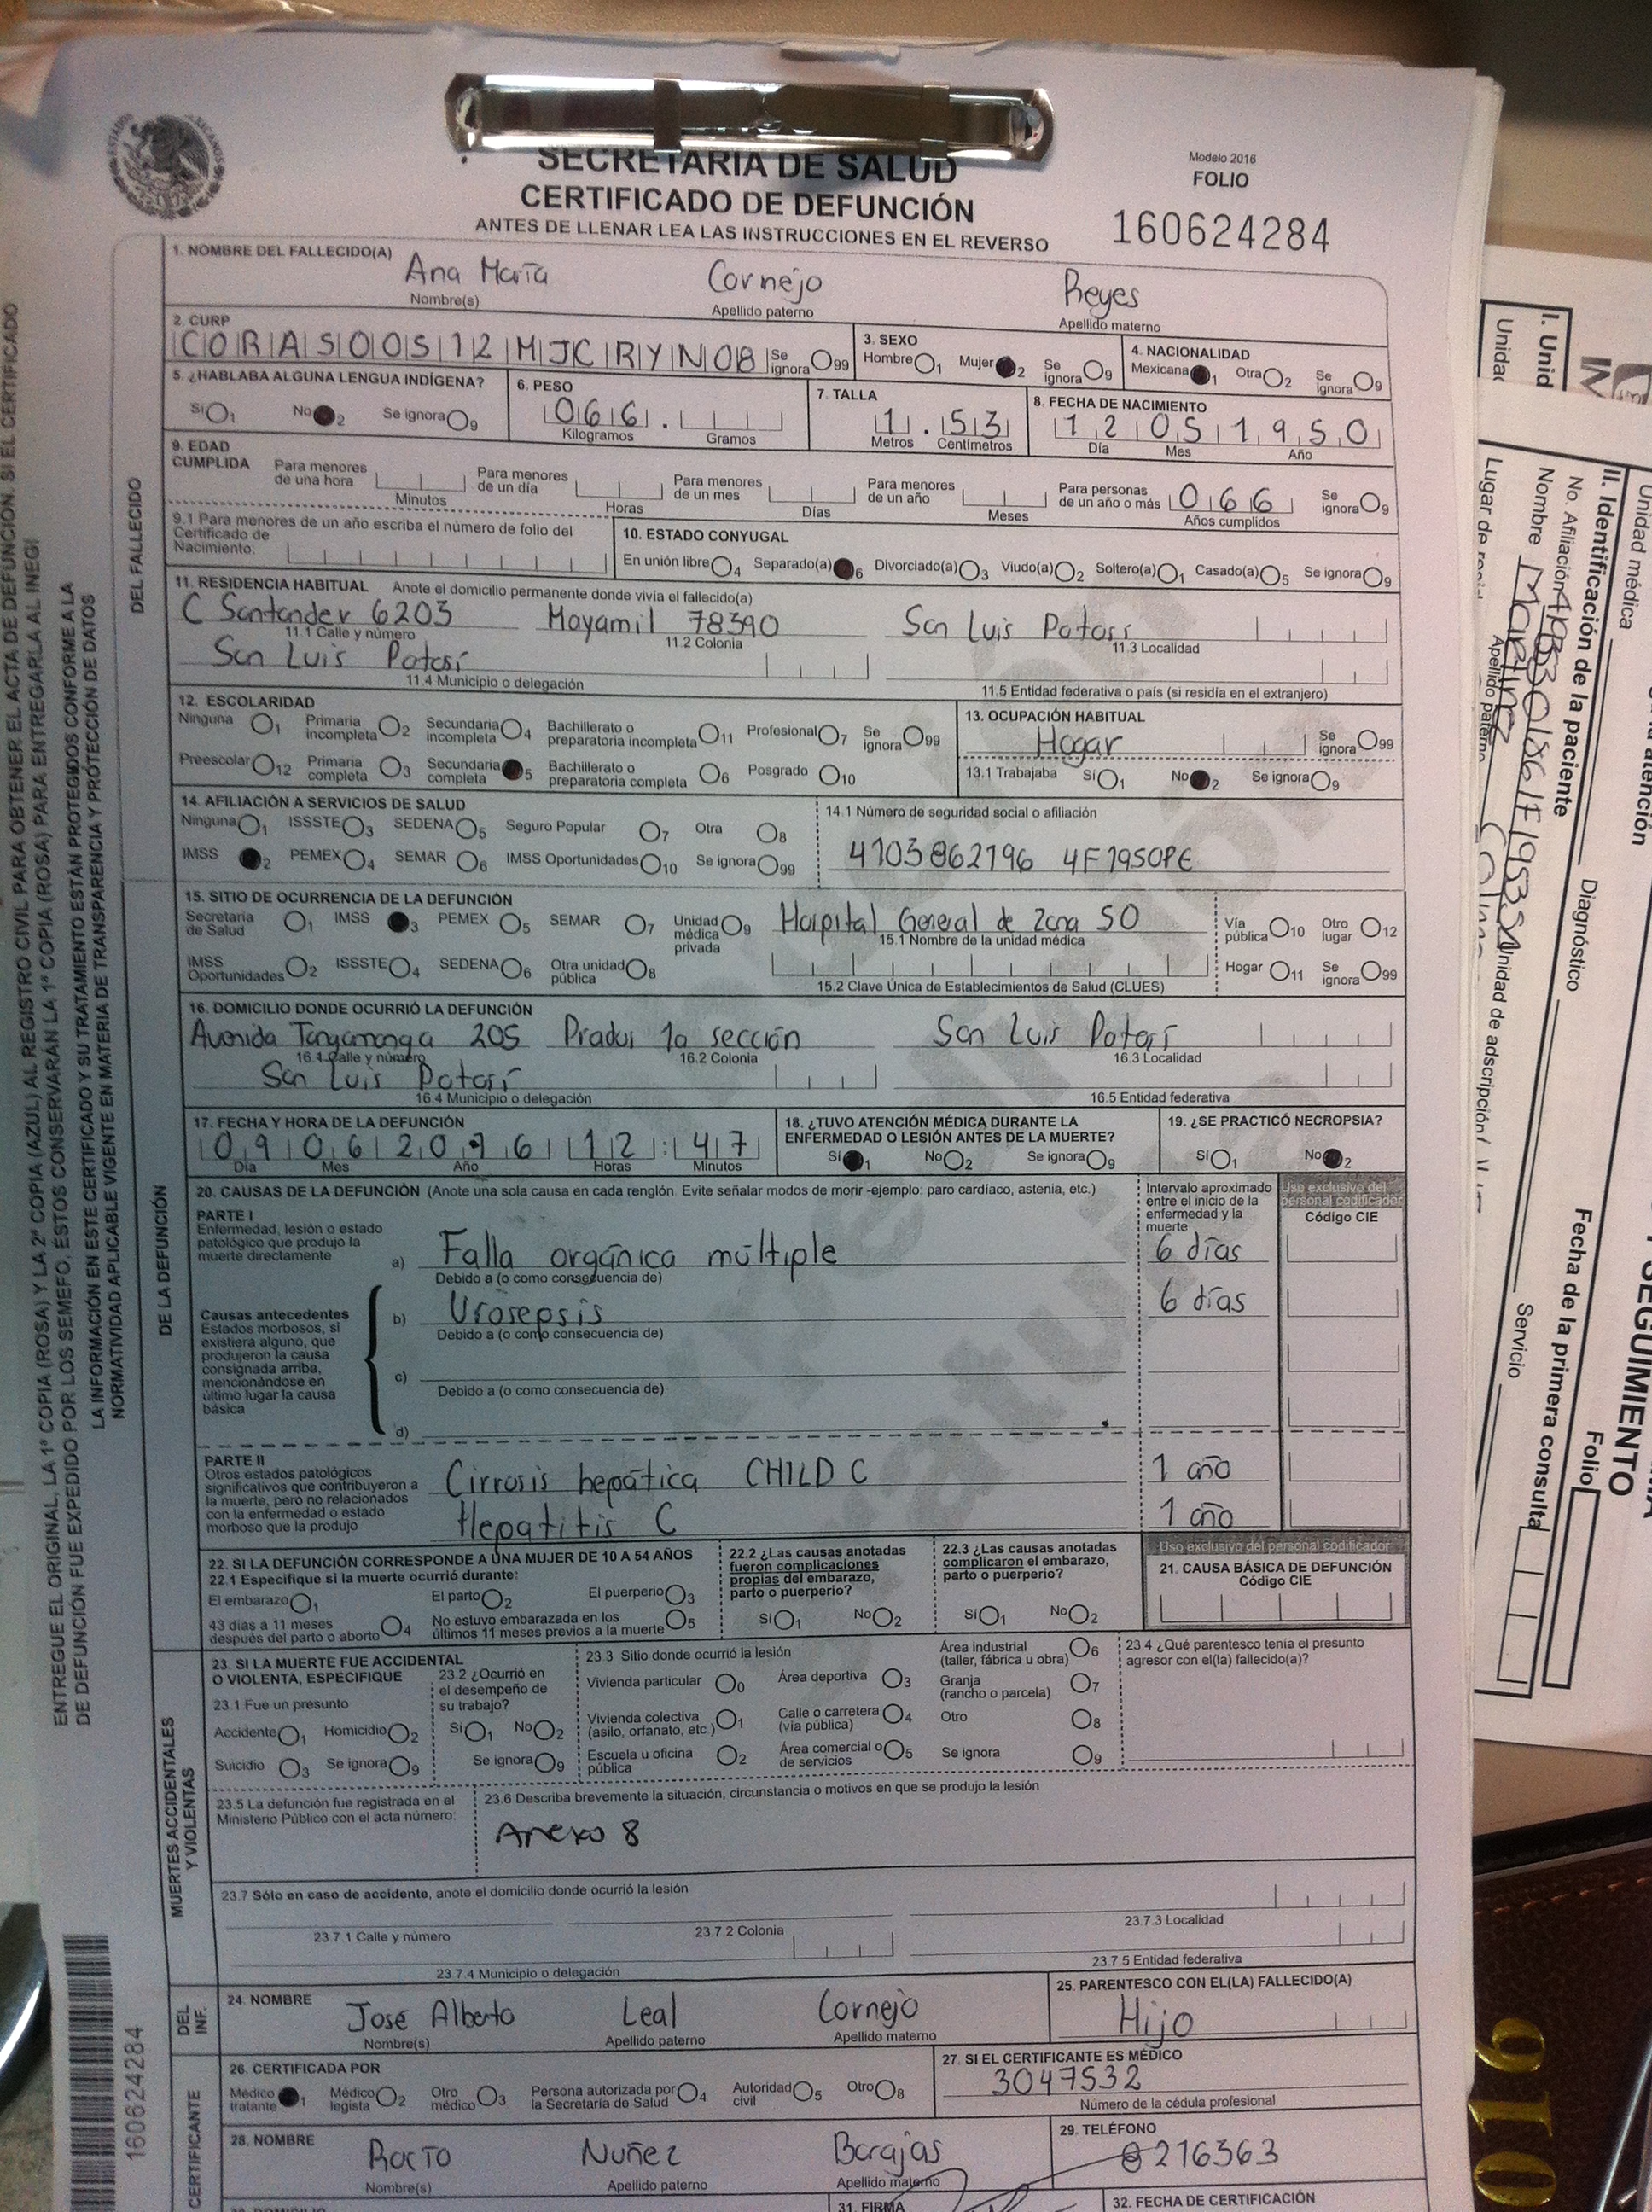 SECRETARIA DE SALUD
CERTIFICADO DE DEFUNCIÓN
ANTES DE LLENAR LEA LAS INSTRUCCIONES EN EL REVERSO
Modelo 2016
FOLIO
160624284
DEL FALLECIDO
1. NOMBRE DEL FALLECIDO(A)
Ana María Cornejo Reyes
Nombre(s) Apellido paterno Apellido materno
2. CURP
CORA500512MJCRYN08 Se ignora 99
3. SEXO
Hombre 1 Mujer 2 Se ignora 9
4. NACIONALIDAD
Mexicana 1 Otra 2 Se ignora 9
5. ¿HABLABA ALGUNA LENGUA INDÍGENA?
Sí 1 No 2 Se ignora 9
6. PESO
066 .
Kilogramos Gramos
7. TALLA
1 . 53
Metros Centímetros
8. FECHA DE NACIMIENTO
12 05 1950
Día Mes Año
9. EDAD CUMPLIDA
Para menores de una hora Minutos
Para menores de un día Horas
Para menores de un mes Días
Para menores de un año Meses
Para personas de un año o más 066 Años cumplidos
Se ignora 9
9.1 Para menores de un año escriba el número de folio del Certificado de Nacimiento:
10. ESTADO CONYUGAL
En unión libre 4 Separado(a) 6 Divorciado(a) 3 Viudo(a) 2 Soltero(a) 1 Casado(a) 5 Se ignora 9
11. RESIDENCIA HABITUAL Anote el domicilio permanente donde vivía el fallecido(a)
C Santander 6203 Mayamil 78390 San Luis Potosí
11.1 Calle y número 11.2 Colonia 11.3 Localidad
San Luis Potosí
11.4 Municipio o delegación 11.5 Entidad federativa o país (si residía en el extranjero)
12. ESCOLARIDAD
Ninguna 1 Primaria incompleta 2 Secundaria incompleta 4 Bachillerato o preparatoria incompleta 11 Profesional 7 Se ignora 99
Preescolar 12 Primaria completa 3 Secundaria completa 5 Bachillerato o preparatoria completa 6 Posgrado 10
13. OCUPACIÓN HABITUAL
Hogar Se ignora 99
13.1 Trabajaba Sí 1 No 2 Se ignora 9
14. AFILIACIÓN A SERVICIOS DE SALUD
Ninguna 1 ISSSTE 3 SEDENA 5 Seguro Popular 7 Otra 8
IMSS 2 PEMEX 4 SEMAR 6 IMSS Oportunidades 10 Se ignora 99
14.1 Número de seguridad social o afiliación
4103862196 4F1950PE
DE LA DEFUNCIÓN
15. SITIO DE OCURRENCIA DE LA DEFUNCIÓN
Secretaría de Salud 1 IMSS 3 PEMEX 5 SEMAR 7 Unidad médica privada 9
IMSS Oportunidades 2 ISSSTE 4 SEDENA 6 Otra unidad pública 8
Hospital General de Zona 50
15.1 Nombre de la unidad médica
15.2 Clave Única de Establecimientos de Salud (CLUES)
Vía pública 10 Otro lugar 12
Hogar 11 Se ignora 99
16. DOMICILIO DONDE OCURRIÓ LA DEFUNCIÓN
Avenida Tangamanga 205 Prados 1a sección San Luis Potosí
16.1 Calle y número 16.2 Colonia 16.3 Localidad
San Luis Potosí
16.4 Municipio o delegación 16.5 Entidad federativa
17. FECHA Y HORA DE LA DEFUNCIÓN
09 06 2016 12:47
Día Mes Año Horas Minutos
18. ¿TUVO ATENCIÓN MÉDICA DURANTE LA ENFERMEDAD O LESIÓN ANTES DE LA MUERTE?
Sí 1 No 2 Se ignora 9
19. ¿SE PRACTICÓ NECROPSIA?
Sí 1 No 2
20. CAUSAS DE LA DEFUNCIÓN (Anote una sola causa en cada renglón. Evite señalar modos de morir -ejemplo: paro cardíaco, astenia, etc.)
Intervalo aproximado entre el inicio de la enfermedad y la muerte
Uso exclusivo del personal codificador
Código CIE
PARTE I
Enfermedad, lesión o estado patológico que produjo la muerte directamente
a) Falla orgánica múltiple 6 días
Debido a (o como consecuencia de)
Causas antecedentes
Estados morbosos, si existiera alguno, que produjeron la causa consignada arriba, mencionándose en último lugar la causa básica
b) Urosepsis 6 días
Debido a (o como consecuencia de)
c)
Debido a (o como consecuencia de)
d)
PARTE II
Otros estados patológicos significativos que contribuyeron a la muerte, pero no relacionados con la enfermedad o estado morboso que la produjo
Cirrosis hepática CHILD C 1 año
Hepatitis C 1 año
22. SI LA DEFUNCIÓN CORRESPONDE A UNA MUJER DE 10 A 54 AÑOS
22.1 Especifique si la muerte ocurrió durante:
El embarazo 1 El parto 2 El puerperio 3
43 días a 11 meses después del parto o aborto 4 No estuvo embarazada en los últimos 11 meses previos a la muerte 5
22.2 ¿Las causas anotadas fueron complicaciones propias del embarazo, parto o puerperio?
Sí 1 No 2
22.3 ¿Las causas anotadas complicaron el embarazo, parto o puerperio?
Sí 1 No 2
Uso exclusivo del personal codificador
21. CAUSA BÁSICA DE DEFUNCIÓN
Código CIE
MUERTES ACCIDENTALES Y VIOLENTAS
23. SI LA MUERTE FUE ACCIDENTAL O VIOLENTA, ESPECIFIQUE
23.1 Fue un presunto
Accidente 1 Homicidio 2
Suicidio 3 Se ignora 9
23.2 ¿Ocurrió en el desempeño de su trabajo?
Sí 1 No 2
Se ignora 9
23.3 Sitio donde ocurrió la lesión
Vivienda particular 0 Área deportiva 3 Área industrial (taller, fábrica u obra) 6
Vivienda colectiva (asilo, orfanato, etc.) 1 Calle o carretera (vía pública) 4 Granja (rancho o parcela) 7
Escuela u oficina pública 2 Área comercial o de servicios 5 Otro 8
Se ignora 9
23.4 ¿Qué parentesco tenía el presunto agresor con el(la) fallecido(a)?
23.5 La defunción fue registrada en el Ministerio Público con el acta número:
23.6 Describa brevemente la situación, circunstancia o motivos en que se produjo la lesión
Anexo 8
23.7 Sólo en caso de accidente, anote el domicilio donde ocurrió la lesión
23.7.1 Calle y número 23.7.2 Colonia 23.7.3 Localidad
23.7.4 Municipio o delegación 23.7.5 Entidad federativa
DEL INF.
24. NOMBRE
José Alberto Leal Cornejo
Nombre(s) Apellido paterno Apellido materno
25. PARENTESCO CON EL(LA) FALLECIDO(A)
Hijo
CERTIFICANTE
26. CERTIFICADA POR
Médico tratante 1 Médico legista 2 Otro médico 3 Persona autorizada por la Secretaría de Salud 4 Autoridad civil 5 Otro 8
27. SI EL CERTIFICANTE ES MÉDICO
3047532
Número de la cédula profesional
28. NOMBRE
Rocío Nuñez Barajas
Nombre(s) Apellido paterno Apellido materno
29. TELÉFONO
8216363
31. FIRMA
32. FECHA DE CERTIFICACIÓN
ENTREGUE EL ORIGINAL, LA 1ª COPIA (ROSA) Y LA 2ª COPIA (AZUL) AL REGISTRO CIVIL PARA OBTENER EL ACTA DE DEFUNCIÓN. SI EL CERTIFICADO
DE DEFUNCIÓN FUE EXPEDIDO POR LOS SEMEFO, ÉSTOS CONSERVARÁN LA 1ª COPIA (ROSA) PARA ENTREGARLA AL INEGI
LA INFORMACIÓN EN ESTE CERTIFICADO Y SU TRATAMIENTO ESTÁN PROTEGIDOS CONFORME A LA
NORMATIVIDAD APLICABLE VIGENTE EN MATERIA DE TRANSPARENCIA Y PROTECCIÓN DE DATOS
160624284
SEGUIMIENTO
Folio
Fecha de la primera consulta
Unidad médica
II. Identificación de la paciente
No. Afiliación
Nombre Martínez
Apellido paterno
Diagnóstico
Unidad de adscripción
Servicio
I. Unid
Unidad
016